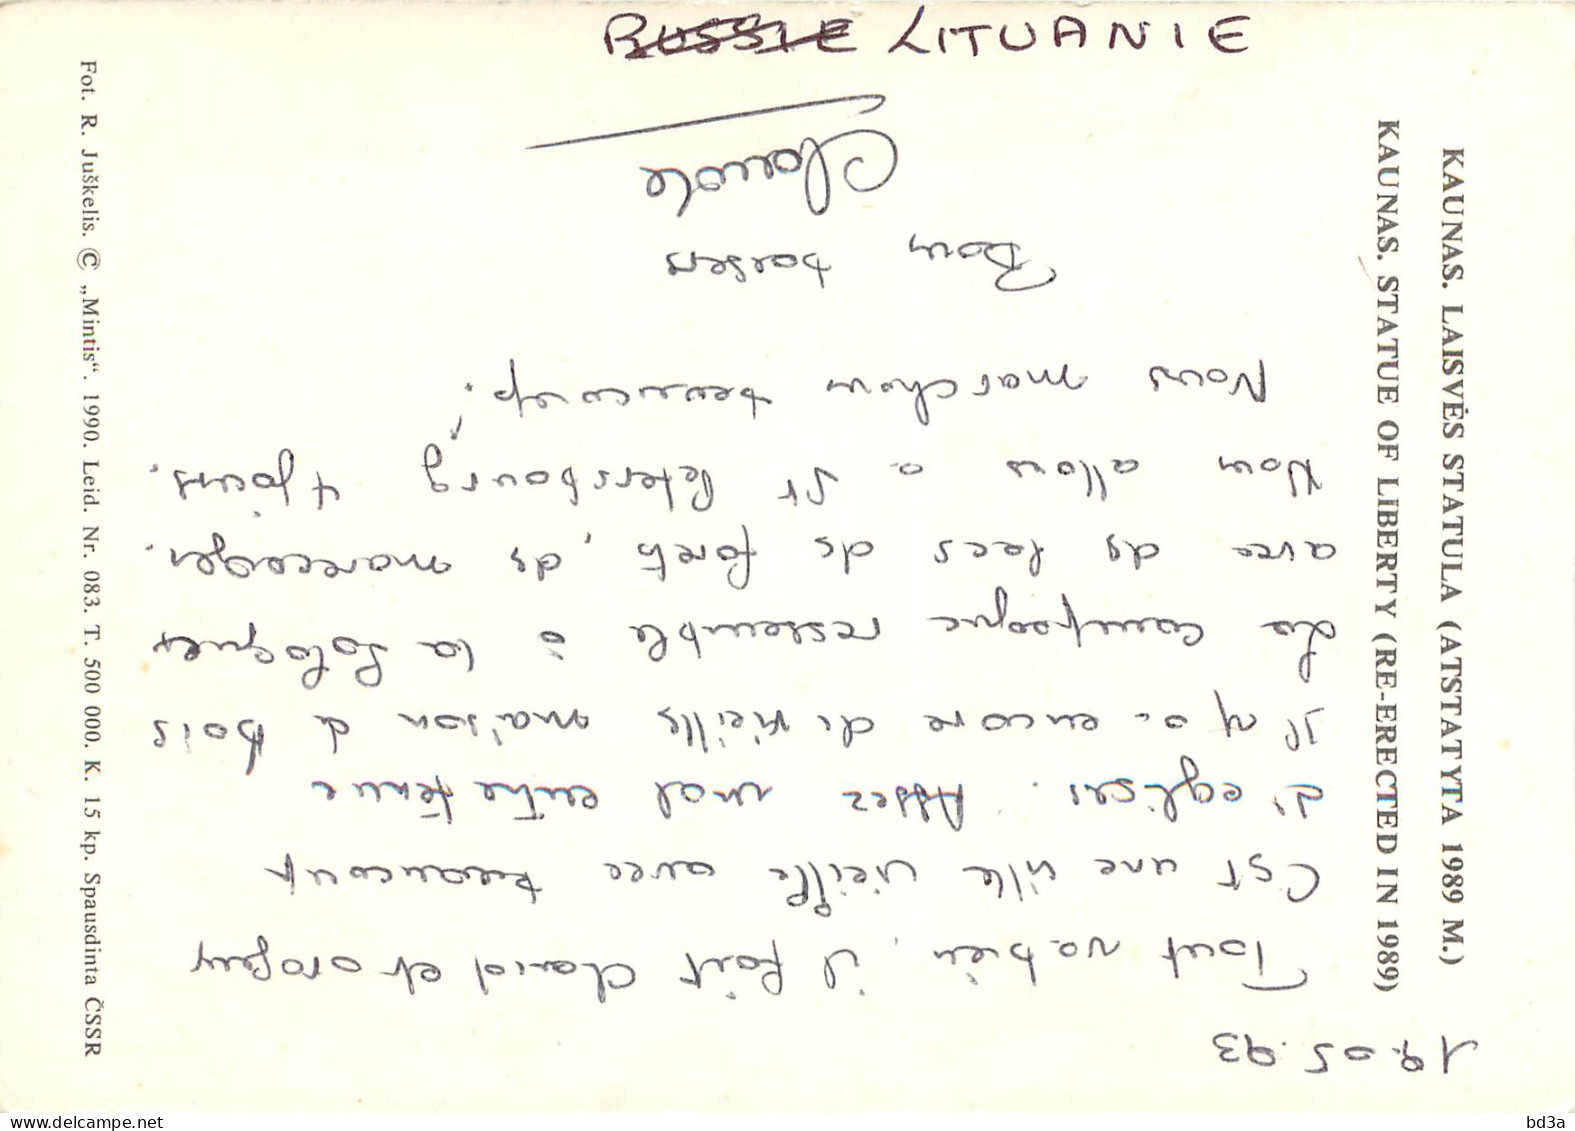 RUSSIE LITUANIE
KAUNAS. LAISVĖS STATULA (ATSTATYTA 1989 M.)
KAUNAS. STATUE OF LIBERTY (RE-ERECTED IN 1989)
19.05.93
Tout va bien, il fait chaud et orageux
C'est une ville vieille avec beaucoup
d'eglises. Assez mal entretenue
Il y a encore de vieilles maison de bois
La campagne ressemble à la Sologne
avec des lacs des forets, des marecages.
Nous allons a St Petersbourg 4 jours.
Nous marchons beaucoup.
Bons baisers
Claude
Fot. R. Juškelis. © „Mintis“. 1990. Leid. Nr. 083. T. 500 000. K. 15 kp. Spausdinta ČSSR
www.delcampe.net
bd3a